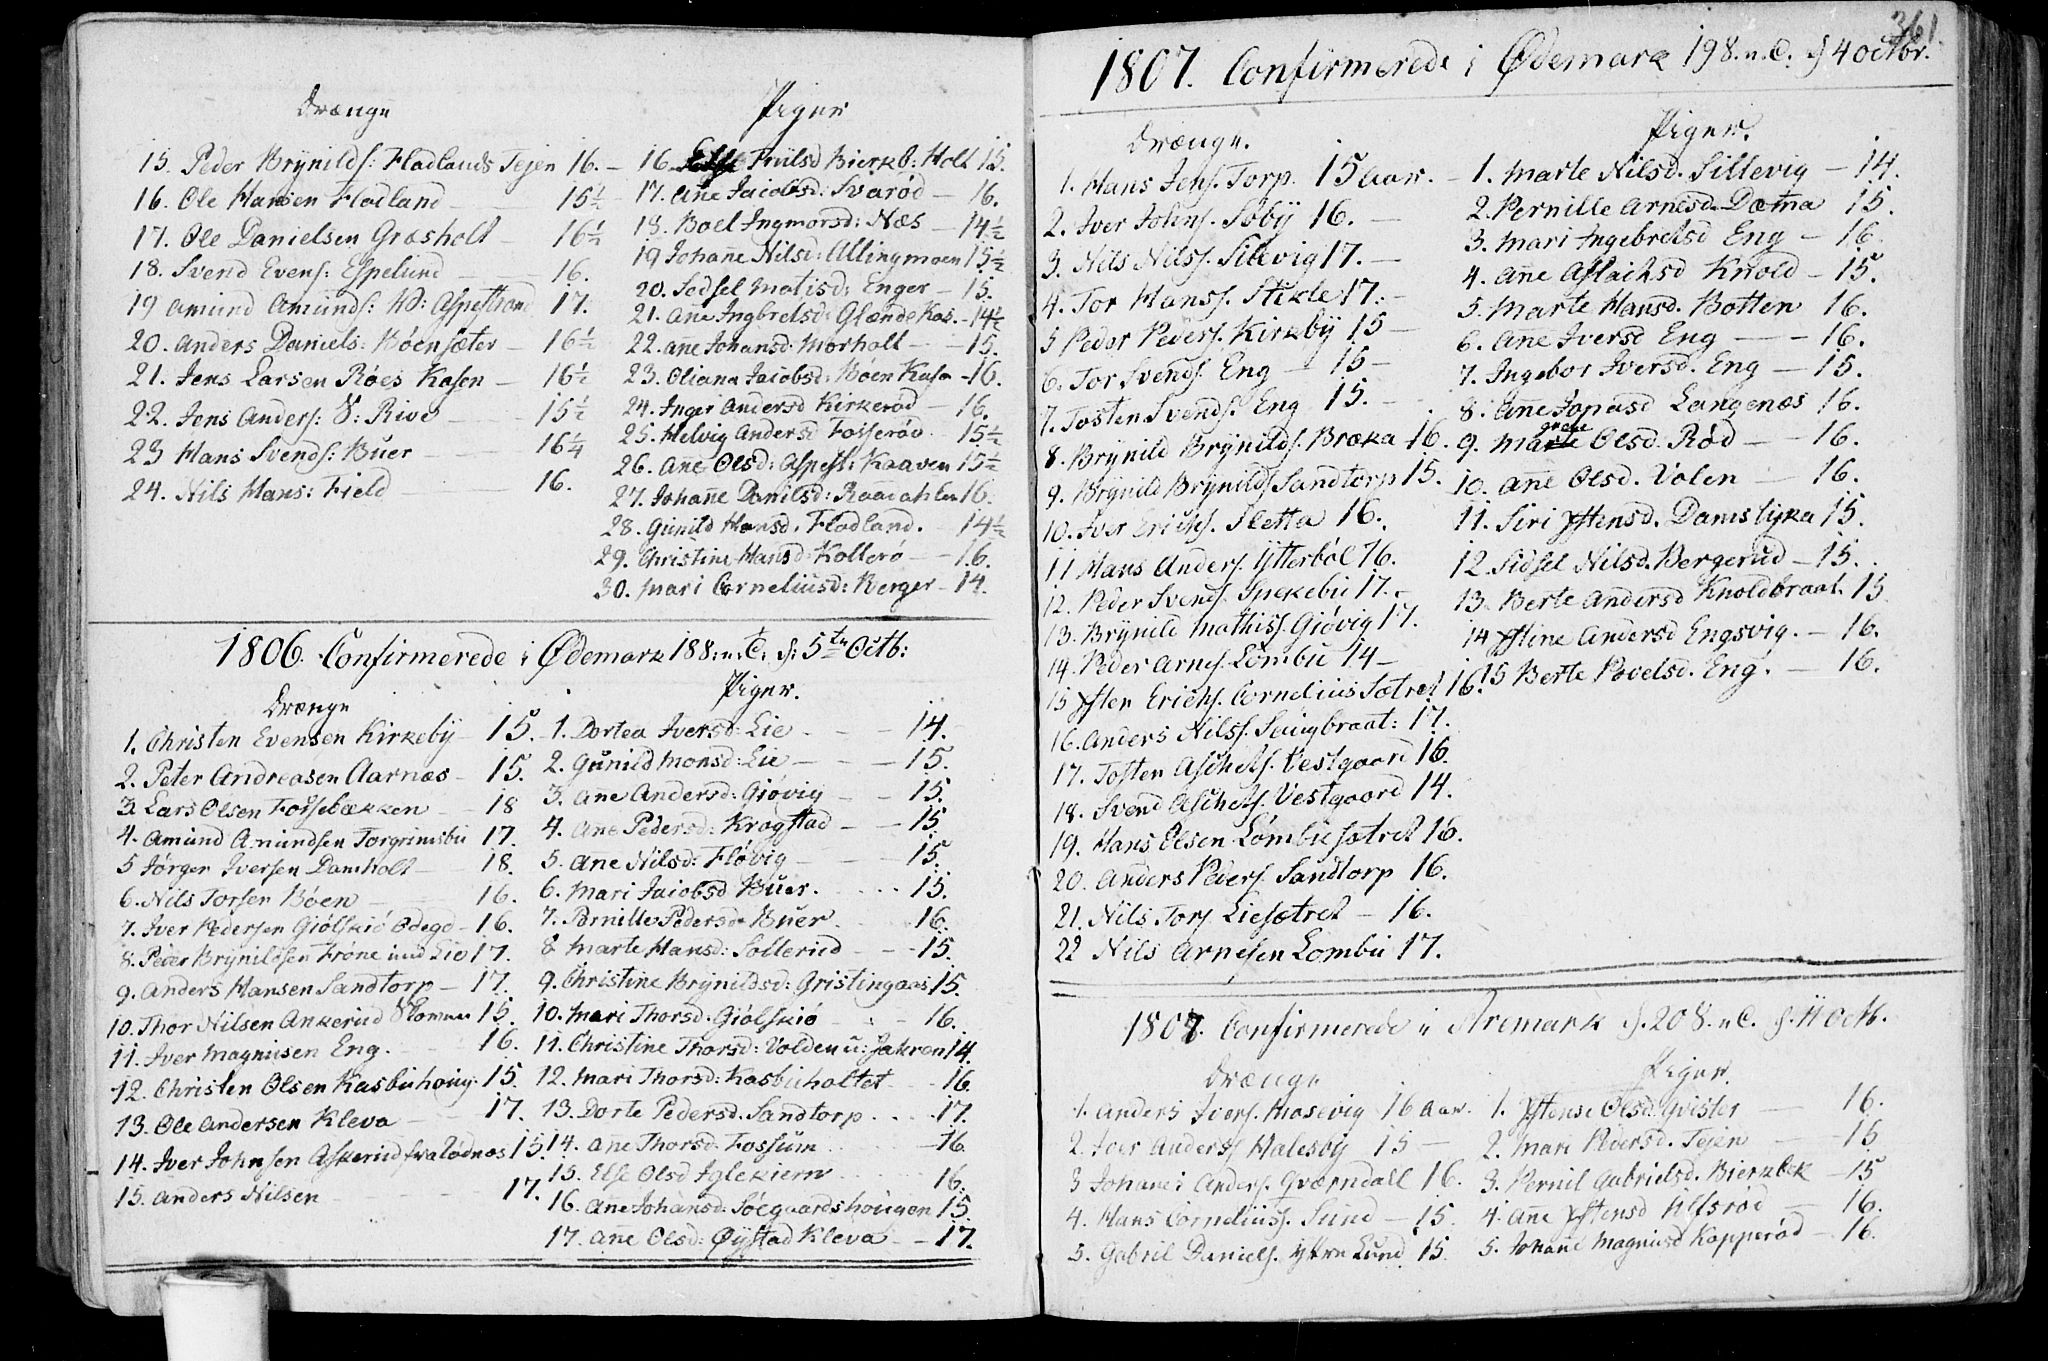 Drænge
15. Peder Brÿnilds: Fladlands Tejen 16.
16. Ole Hansen Fladland 15½
17. Ole Danielsen Græsholt 16½
18. Svend Evens: Espelund 16.
19 Amund Amunds: Aspestrand 17.
20. Anders Daniels: Bøensæter 16½
21. Jens Larsen Røes Kasen 16½
22. Jens Anders: V: Rive 15½
23 Hans Svends: Buer 16¼
24. Nils Hans: Field 16.
Piger
16. Bierkb: Holt 15.
17. Añe Jacobsd: Svarød 16.
18. Boel Ingmorsd: Næs 14½
19 Johañe Nilsd: Allingmoen 15½
20. Sedsel Matisd: Enger 15.
21. Ane Ingbretsd: Glænde Kas. 14½
22. Añe Johansd: Morholt 15.
23. Oliana Jacobsd: Bøen Kasa 16.
24. Inger Andersd Kirkerød 16.
25. Helvig Andersd Fosserød 15½
26. Añe Olsd: Aspest: Kaaven 15½
27. Johañe Danilsd: 16.
28. Gunild Hansd. Fladland. 14½
29. Christine Hansd: Kollerø 16.
30. Mari Corneliusd: Berger 14.
1806. Confirmerede i Ødemark 188: n: C: d: 5te Octb:
Drænge
1. Christen Evensen Kirkebÿ 15.
2. Peter Andreasen Aarnæs 15.
3. Lars Olsen Fossebækken 18
4. Amund Amundsen Torgrimsbu 17.
5 Jørgen Iversen Damholt 18.
6. Nils Torsen Bøen 16.
7. Iver Pedersen Giølskiø Ødegd 16.
8. Peder Brÿnildsen Krøne und Lie 17.
9. Anders Hansen Sandtorp 17.
10. Thor Nilsen Ankerud 15.
11. Iver Magnusen Eng. 16.
12. Christen Olsen Kasbuhoug 15.
13. Ole Andersen Kleva 17.
14. Iver Johnsen Askerud fra lødnæs 15.
15. Anders Nilsen 17.
Piger.
1. Dortea Iversd: Lie 14.
2. Gunild Monsd: Lie 15.
3. Añe Andersd: Giøvig 15.
4. Ane Pedersd: Kragstad 15
5. Ane Nilsd: Fløvig 15.
6. Mari Jacobsd Buer. 15.
7. Pernille Pedersd: Buer 16.
8 Marte Hansd: Sollerud 15.
9. Christine Brÿnildsd: Gristingaas 15.
10. Mari Thorsd: Giølskiø 16.
11. Christine Thorsd: Volden u: Jakren 14.
12. Mari Thorsd: Kasbuholtet 16.
13. Dorte Pedersd. Sandtorp 17.
14. Añe Thorsd: Fossum 16.
15. Else Olsd Iglekiern 16.
16. Añe Johansd: Søegaardshougen 15.
17. Añe Olsd: Øÿstad Kleva 17.
361.
1807. Confirmerede i Ødemark 198. n. C. d 4 octbr.
Drænge.
1. Hans Jens. Torp. 15 aar.
2. Iver Johns. Søbÿ 16.
3. Nils Nilss. Silevig 17.
4. Tor Hanss. Stikle 17.
5 Peder Peders. Kirkbÿ 15
6. Tor Svends. Eng 15
7. Tosten Svends. Eng 15.
8. Brÿnild Brÿnilds. Bræka 16.
9. Brÿnild Brÿnilds. Sandtorp 15.
10. Iver Erichs. Sletta 16.
11 Hans Anders. Ytterbøl 16.
12. Peder Svends. Spekebu 17.
13. Brÿnild Mathiss. Giøvig 17.
14. Peder Arnes. Lombu 14
15 Ysten Erichs. Cornelius Sætret 16.
16. Anders Nilss. 17.
17. Tosten Aschels. Vestgaard 16.
18. Svend Aschels. Vestgaard 14.
19. Hans Elsen Lømbusætret 16.
20. Anders Peders. Sandtorp 16.
21. Nils Tors. Liesætret 16.
22 Nils Arnesen Lombu 17.
Piger.
1. Marte Nilsd. Sillevig 14.
2. Pernille Arnesd. Dætna 15.
3. Mari Ingebretsd Eng 16.
4. Añe Aslachsd Knold 15.
5 Marte Hansd. Botten 16.
6. Añe Iversd Eng 16.
7. Ingebor Iversd. Eng 15.
8. Añe Jonasd Langenæs 16.
9. Margrete Olsd. Rød 16.
10. Añe Olsd. Volen 16.
11. Siri Ystensd. Damstÿka 15.
12. Sidsel Nilsd. Bergerud 15.
13. Berte Andersd Knoldbraat. 15
14 Ystine Andersd Engsvig. 16.
15 Berte Povelsd. Eng. 16.
1807. Confirmerede i Aremark d. 20 S. n C. d. 11 Octb.
Drænge
1. Anders Ivers. Mosevig 16 aar.
2. Iver Anderss Halesbÿ 15
3 Johañes Anders. Qværndall 16.
4. Hans Corneliuss. Sund 15.
5. Gabril Daniels. ytre Lund 15.
Piger.
1. Ystense Olsd. Qvister 16.
2. Mari Pedersd. Tejen 15
3. Pernil Gabrielsd. Bierkbek 15
4. Añe Ystensd Ulfsrød 16.
5. Johañe Magnusd Kapperød 16.